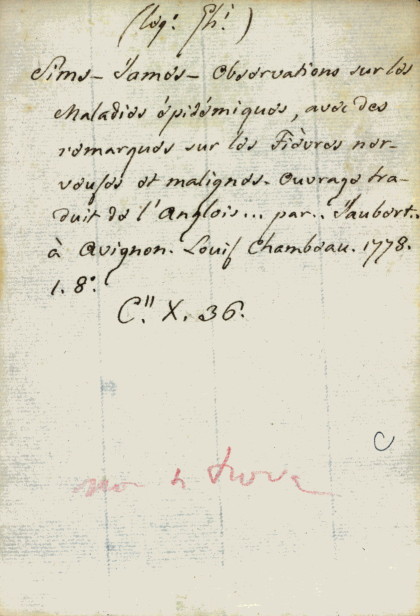 (leg.e Ph.i)
Sims - James - Observations sur les
Maladies épidémiques, avec des
remarques sur les Fièvres ner-
veuses et malignes. Ouvrage tra-
duit de l'Anglois... par.. Jaubert..
à Avignon. Louis Chambeau. 1778.
1. 8.°
C." X. 36.
C
non si trova